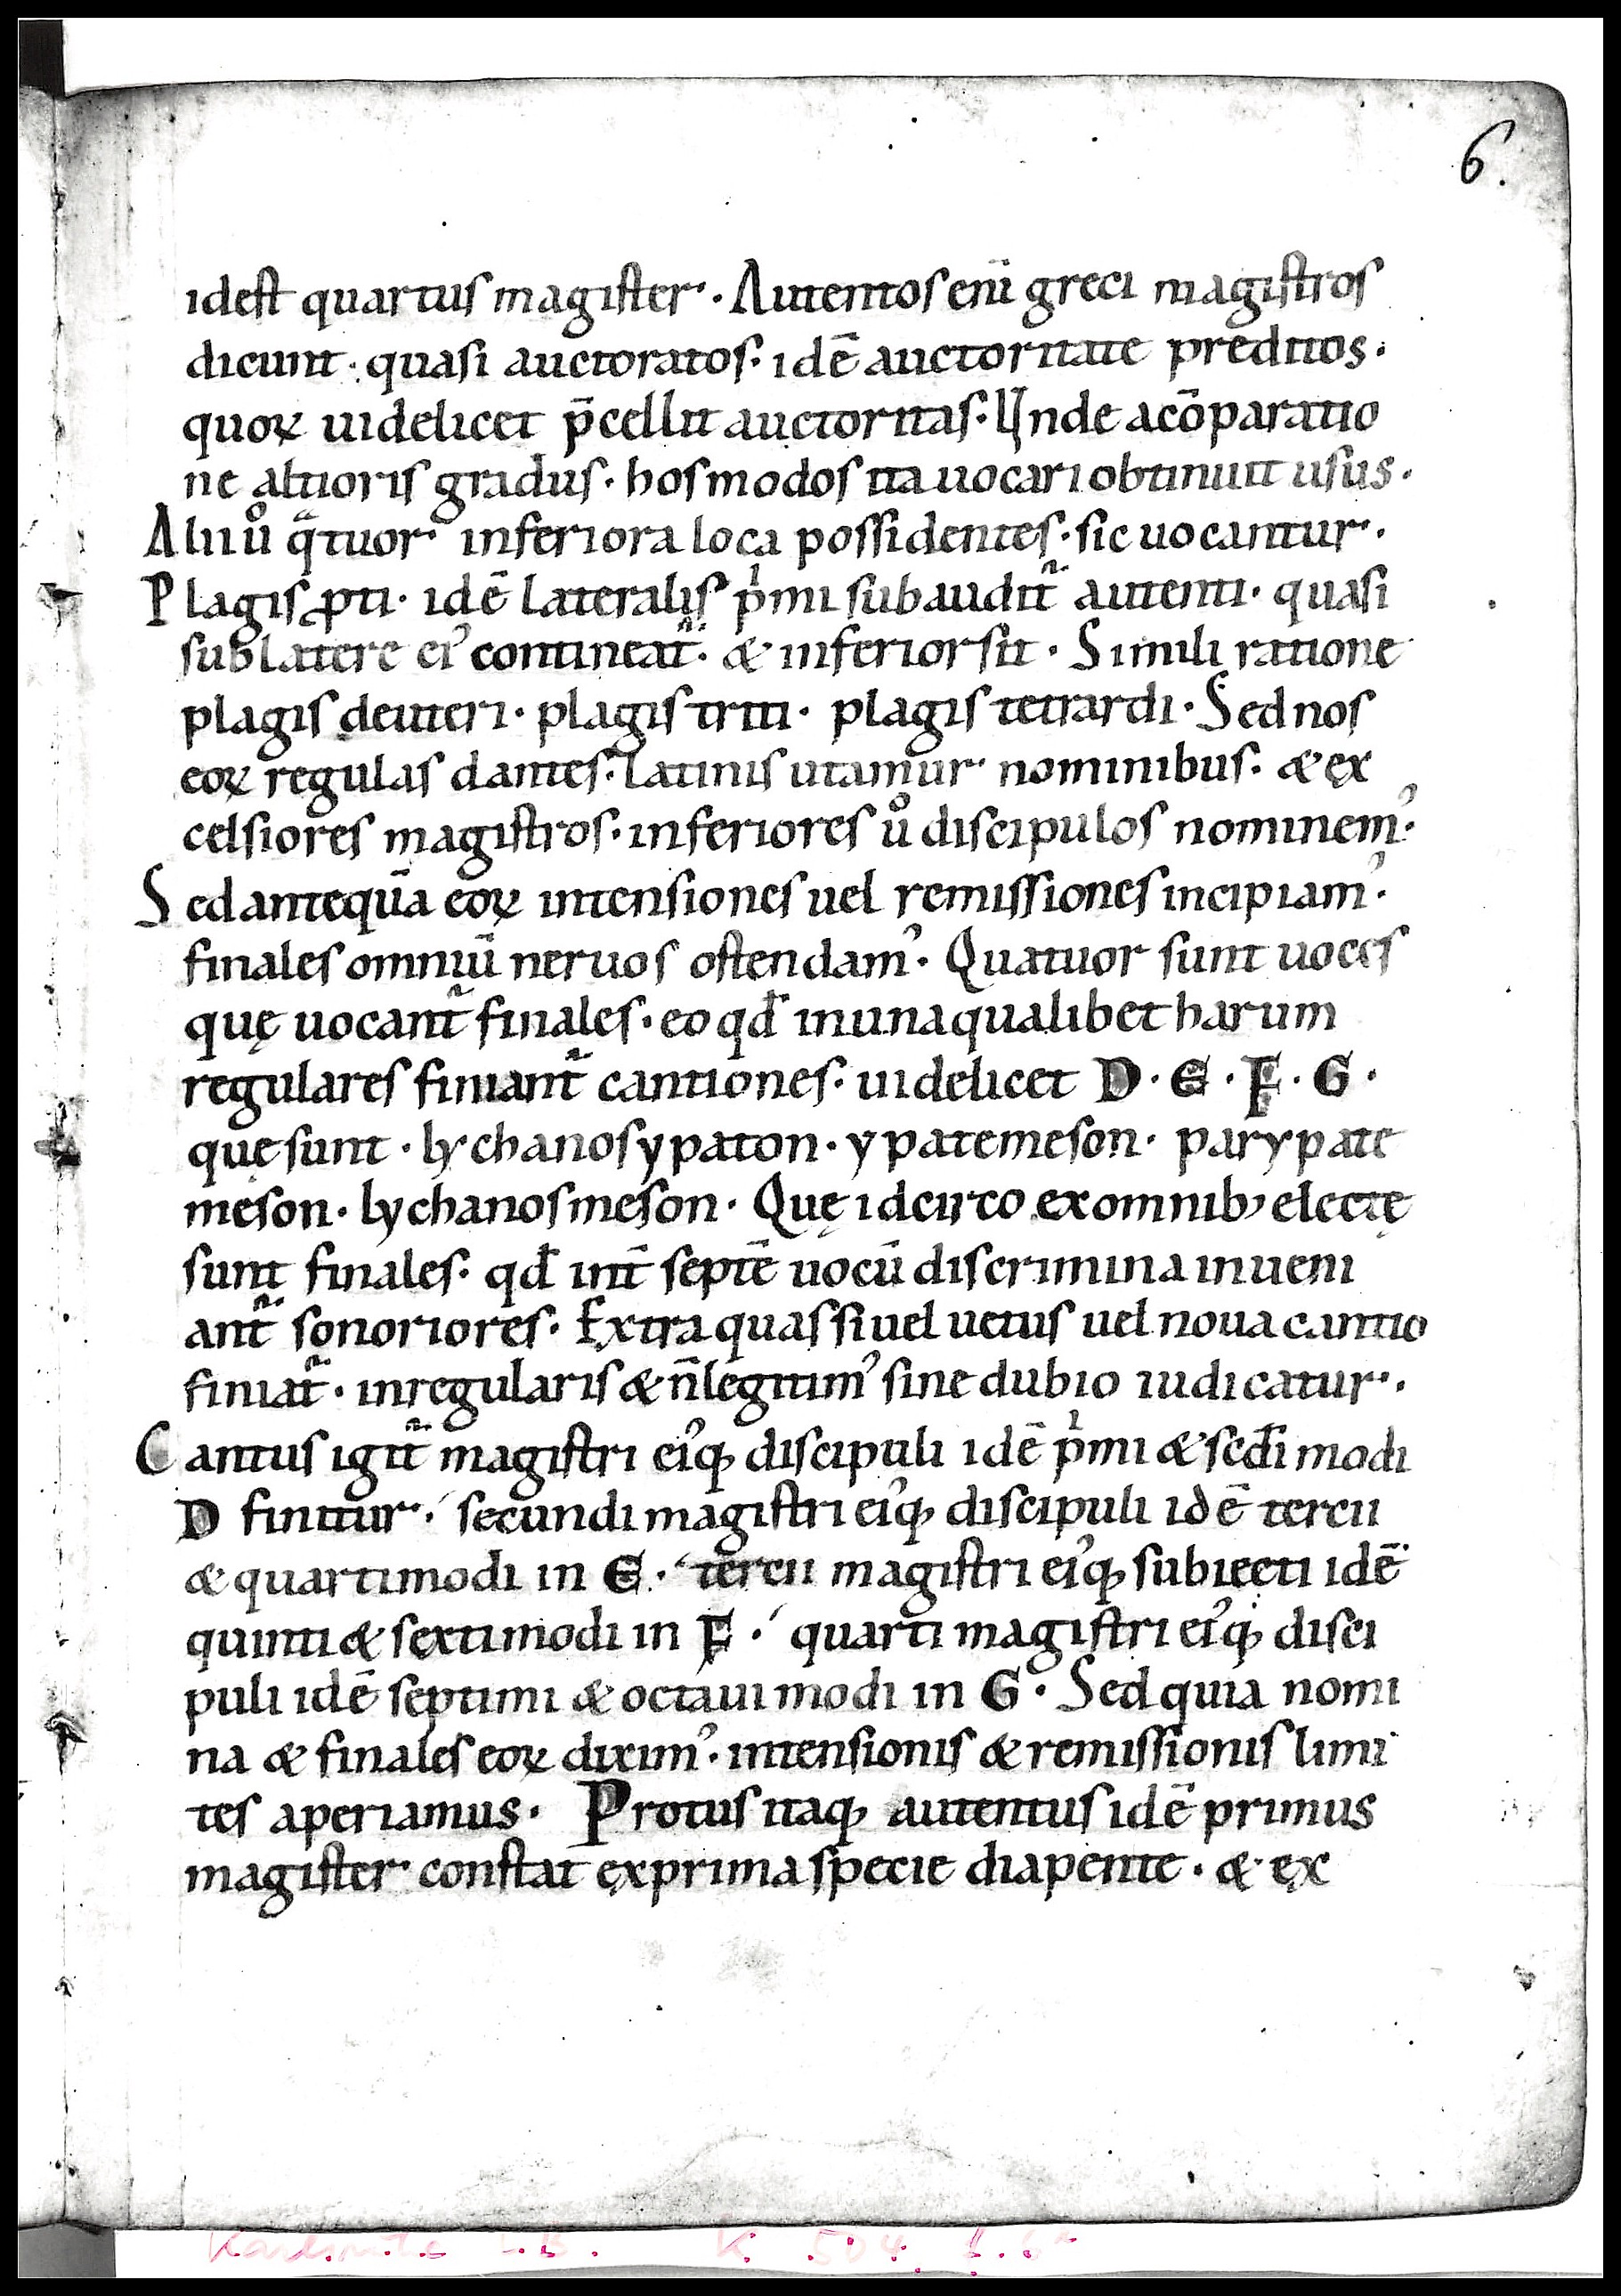 6.
idest quartus magister. Autentos enī greci magistros
dicunt. quasi auctoratos. idē auctoritate preditos.
quoꝝ uidelicet p̄cellit auctoritas. Unde acōparatio
ne altioris gradus. hos modos ita uocari obtinuit usus.
Alii uͦ qͣtuor inferiora loca possidentes. sic uocantur.
Plagis ꝓti. idē lateralis pͥmi subaudit᷑ autenti. quasi
sub latere eiꝰ contineat᷑. & inferior sit. Simili ratione
plagis deuteri. plagis triti. plagis tetrardi. Sed nos
eoꝝ regulas dantes. latinis utamur nominibus. & ex
celsiores magistros. inferiores uͦ discipulos nominemꝰ.
Sed antequā eoꝝ intensiones uel remissiones incipiamꝰ.
finales omniū neruos ostendamꝰ. Quatuor sunt uoces
quę uocant᷑ finales. eo qđ in una qualibet harum
regulares finiant᷑ cantiones. uidelicet D. E. F. G.
quę sunt. lychanos ypaton. ypate meson. parypate
meson. lychanos meson. Quę idcirco ex omnibꝫ electę
sunt finales. qđ int̄ septē uocū discrimina inueni
ant᷑ sonoriores. Extra quas si uel uetus uel noua cantio
finiat᷑. inregularis & n̄ legitimꝰ sine dubio iudicatur.
Cantus igit᷑ magistri eiꝰqꝫ discipuli idē pͥmi & scđi modi
D finitur. secundi magistri eiꝰqꝫ discipuli idē tercii
& quarti modi in E. tercii magistri eiꝰqꝫ subiecti idē
quinti & sexti modi in F. quarti magistri eiꝰqꝫ disci
puli idē septimi & octaui modi in G. Sed quia nomi
na & finales eoꝝ diximꝰ. intensionis & remissionis limi
tes aperiamus. Protus itaqꝫ autentus idē primus
magister constat ex prima specie diapente. & ex